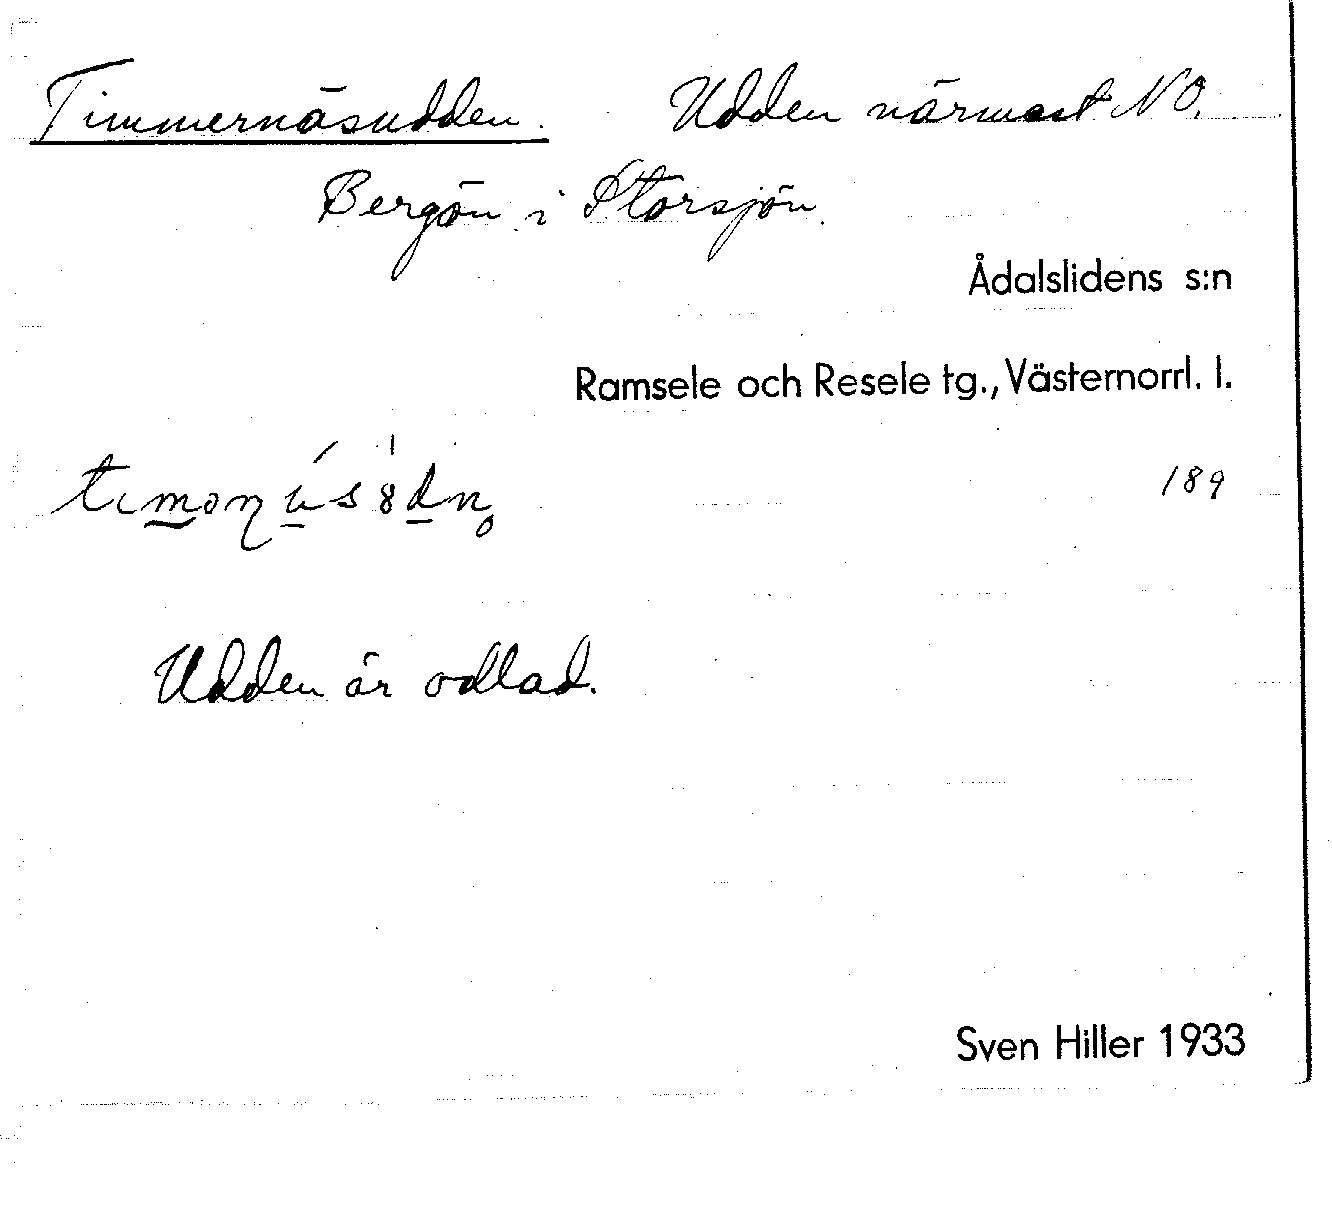 Timmernäsudden. Udden närmast NO.
Bergön i Storsjön.
Ådalslidens s:n
Ramsele och Resele tg., Västernorrl. l.
189
Udden är odlad.
Sven Hiller 1933